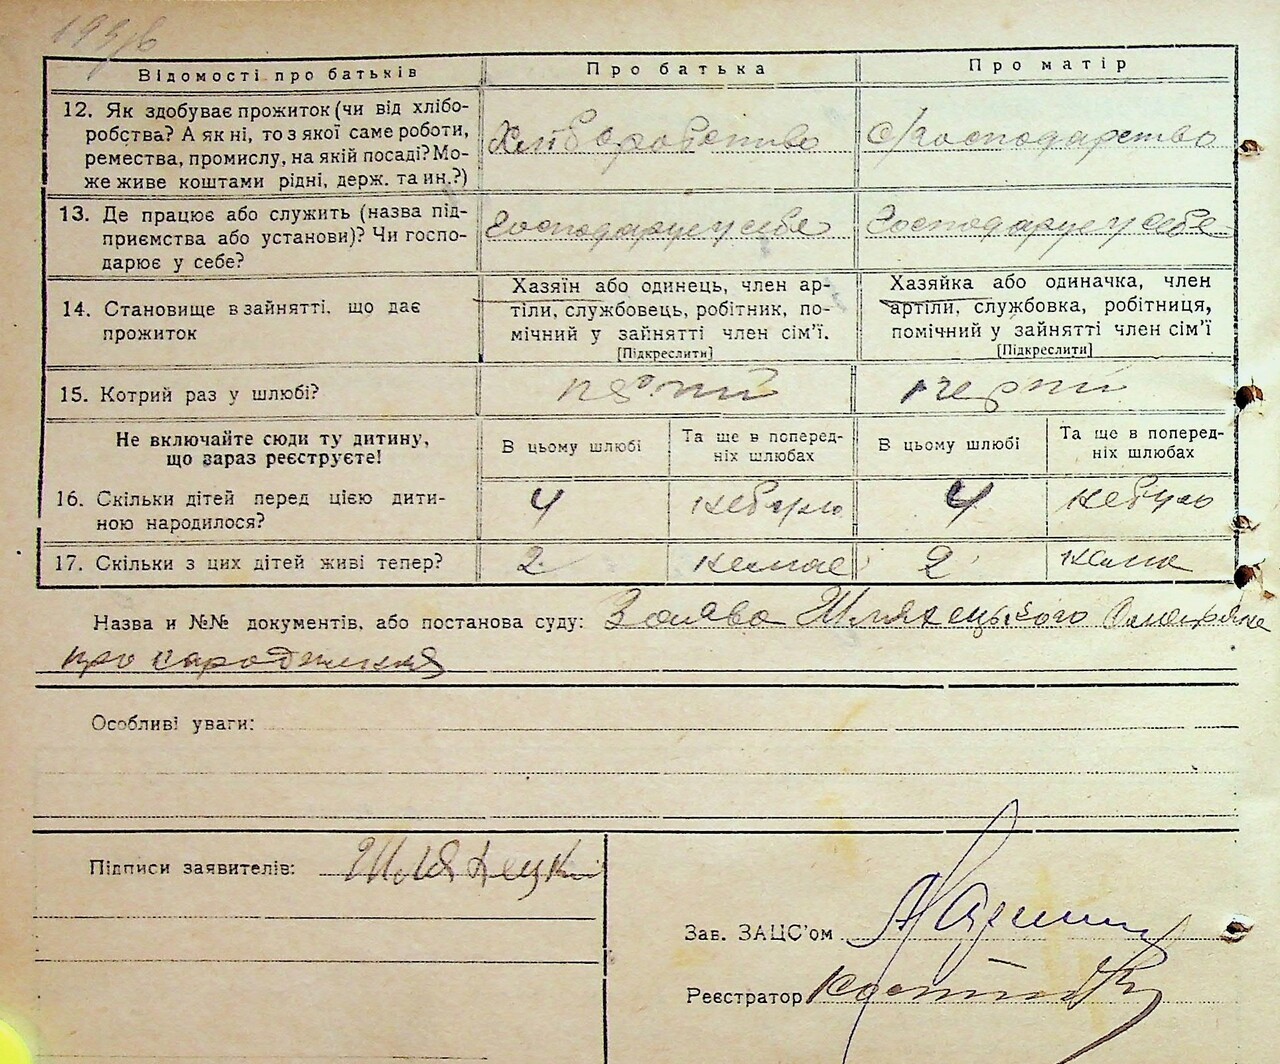 Відомості про батьків
Про батька
Про матір
12. Як здобуває прожиток (чи від хлібо-
робства? А як ні, то з якої саме роботи,
ремества, промислу, на якій посаді? Мо-
же живе коштами рідні, держ. та ин.?)
Хліборобство
с/господарство
13. Де працює або служить (назва під-
приємства або установи)? Чи госпо-
дарює у себе?
Господарує у себе
Господарує у себе
14. Становище в зайнятті, що дає
прожиток
Хазяїн або одинець, член ар-
тіли, службовець, робітник, по-
мічний у зайнятті член сім'ї.
[Підкреслити]
Хазяйка або одиначка, член
артіли, службовка, робітниця,
помічний у зайнятті член сім'ї
[Підкреслити]
15. Котрий раз у шлюбі?
Не включайте сюди ту дитину,
що зараз реєструєте!
В цьому шлюбі
Та ще в поперед-
ніх шлюбах
В цьому шлюбі
Та ще в поперед-
ніх шлюбах
16. Скільки дітей перед цією дити-
ною народилося?
4
небуло
4
небуло
17. Скільки з цих дітей живі тепер?
2
немає
2
Назва и №№ документів, або постанова суду: Заява Шляхецького
про народження
Особливі уваги:
Підписи заявителів: Шляхецкі
Зав. ЗАЦС'ом
Реєстратор